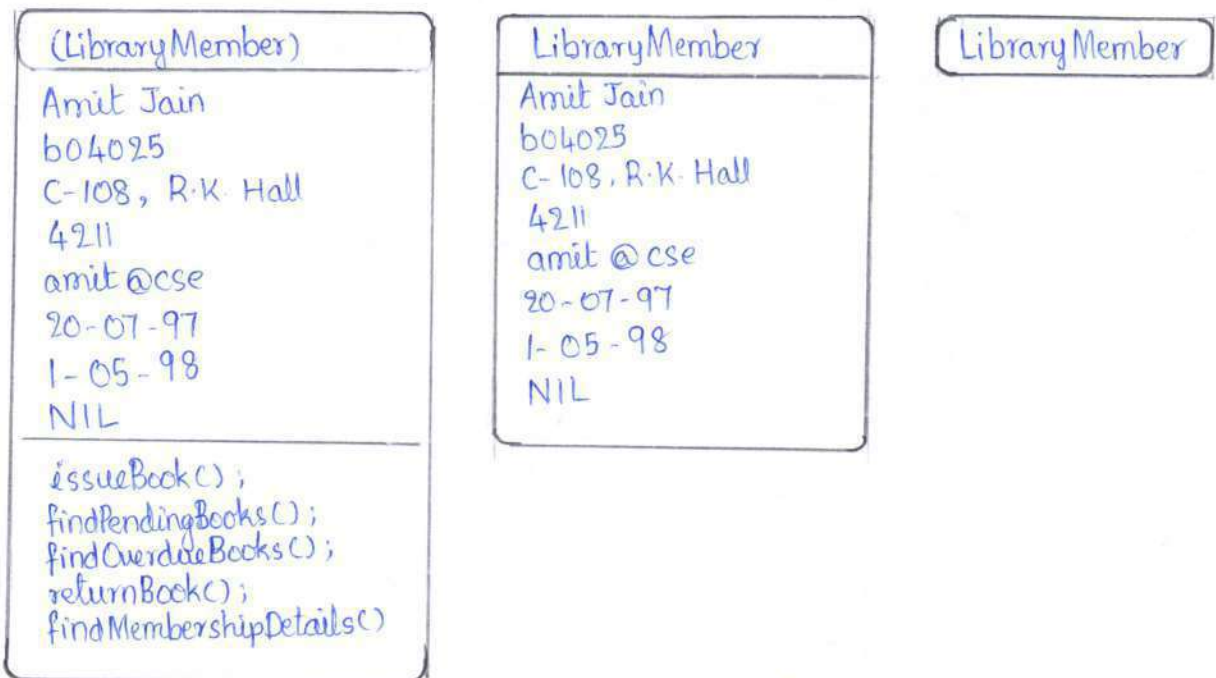 (LibraryMember)
Amit Jain
b04025
C-108, R.K. Hall
4211
amit@cse
20-07-97
1-05-98
NIL
issueBook();
findPendingBooks();
findOverdueBooks();
returnBook();
findMembershipDetails()
LibraryMember
Amit Jain
b04025
C-108, R.K. Hall
4211
amit @ cse
20-07-97
1-05-98
NIL
LibraryMember